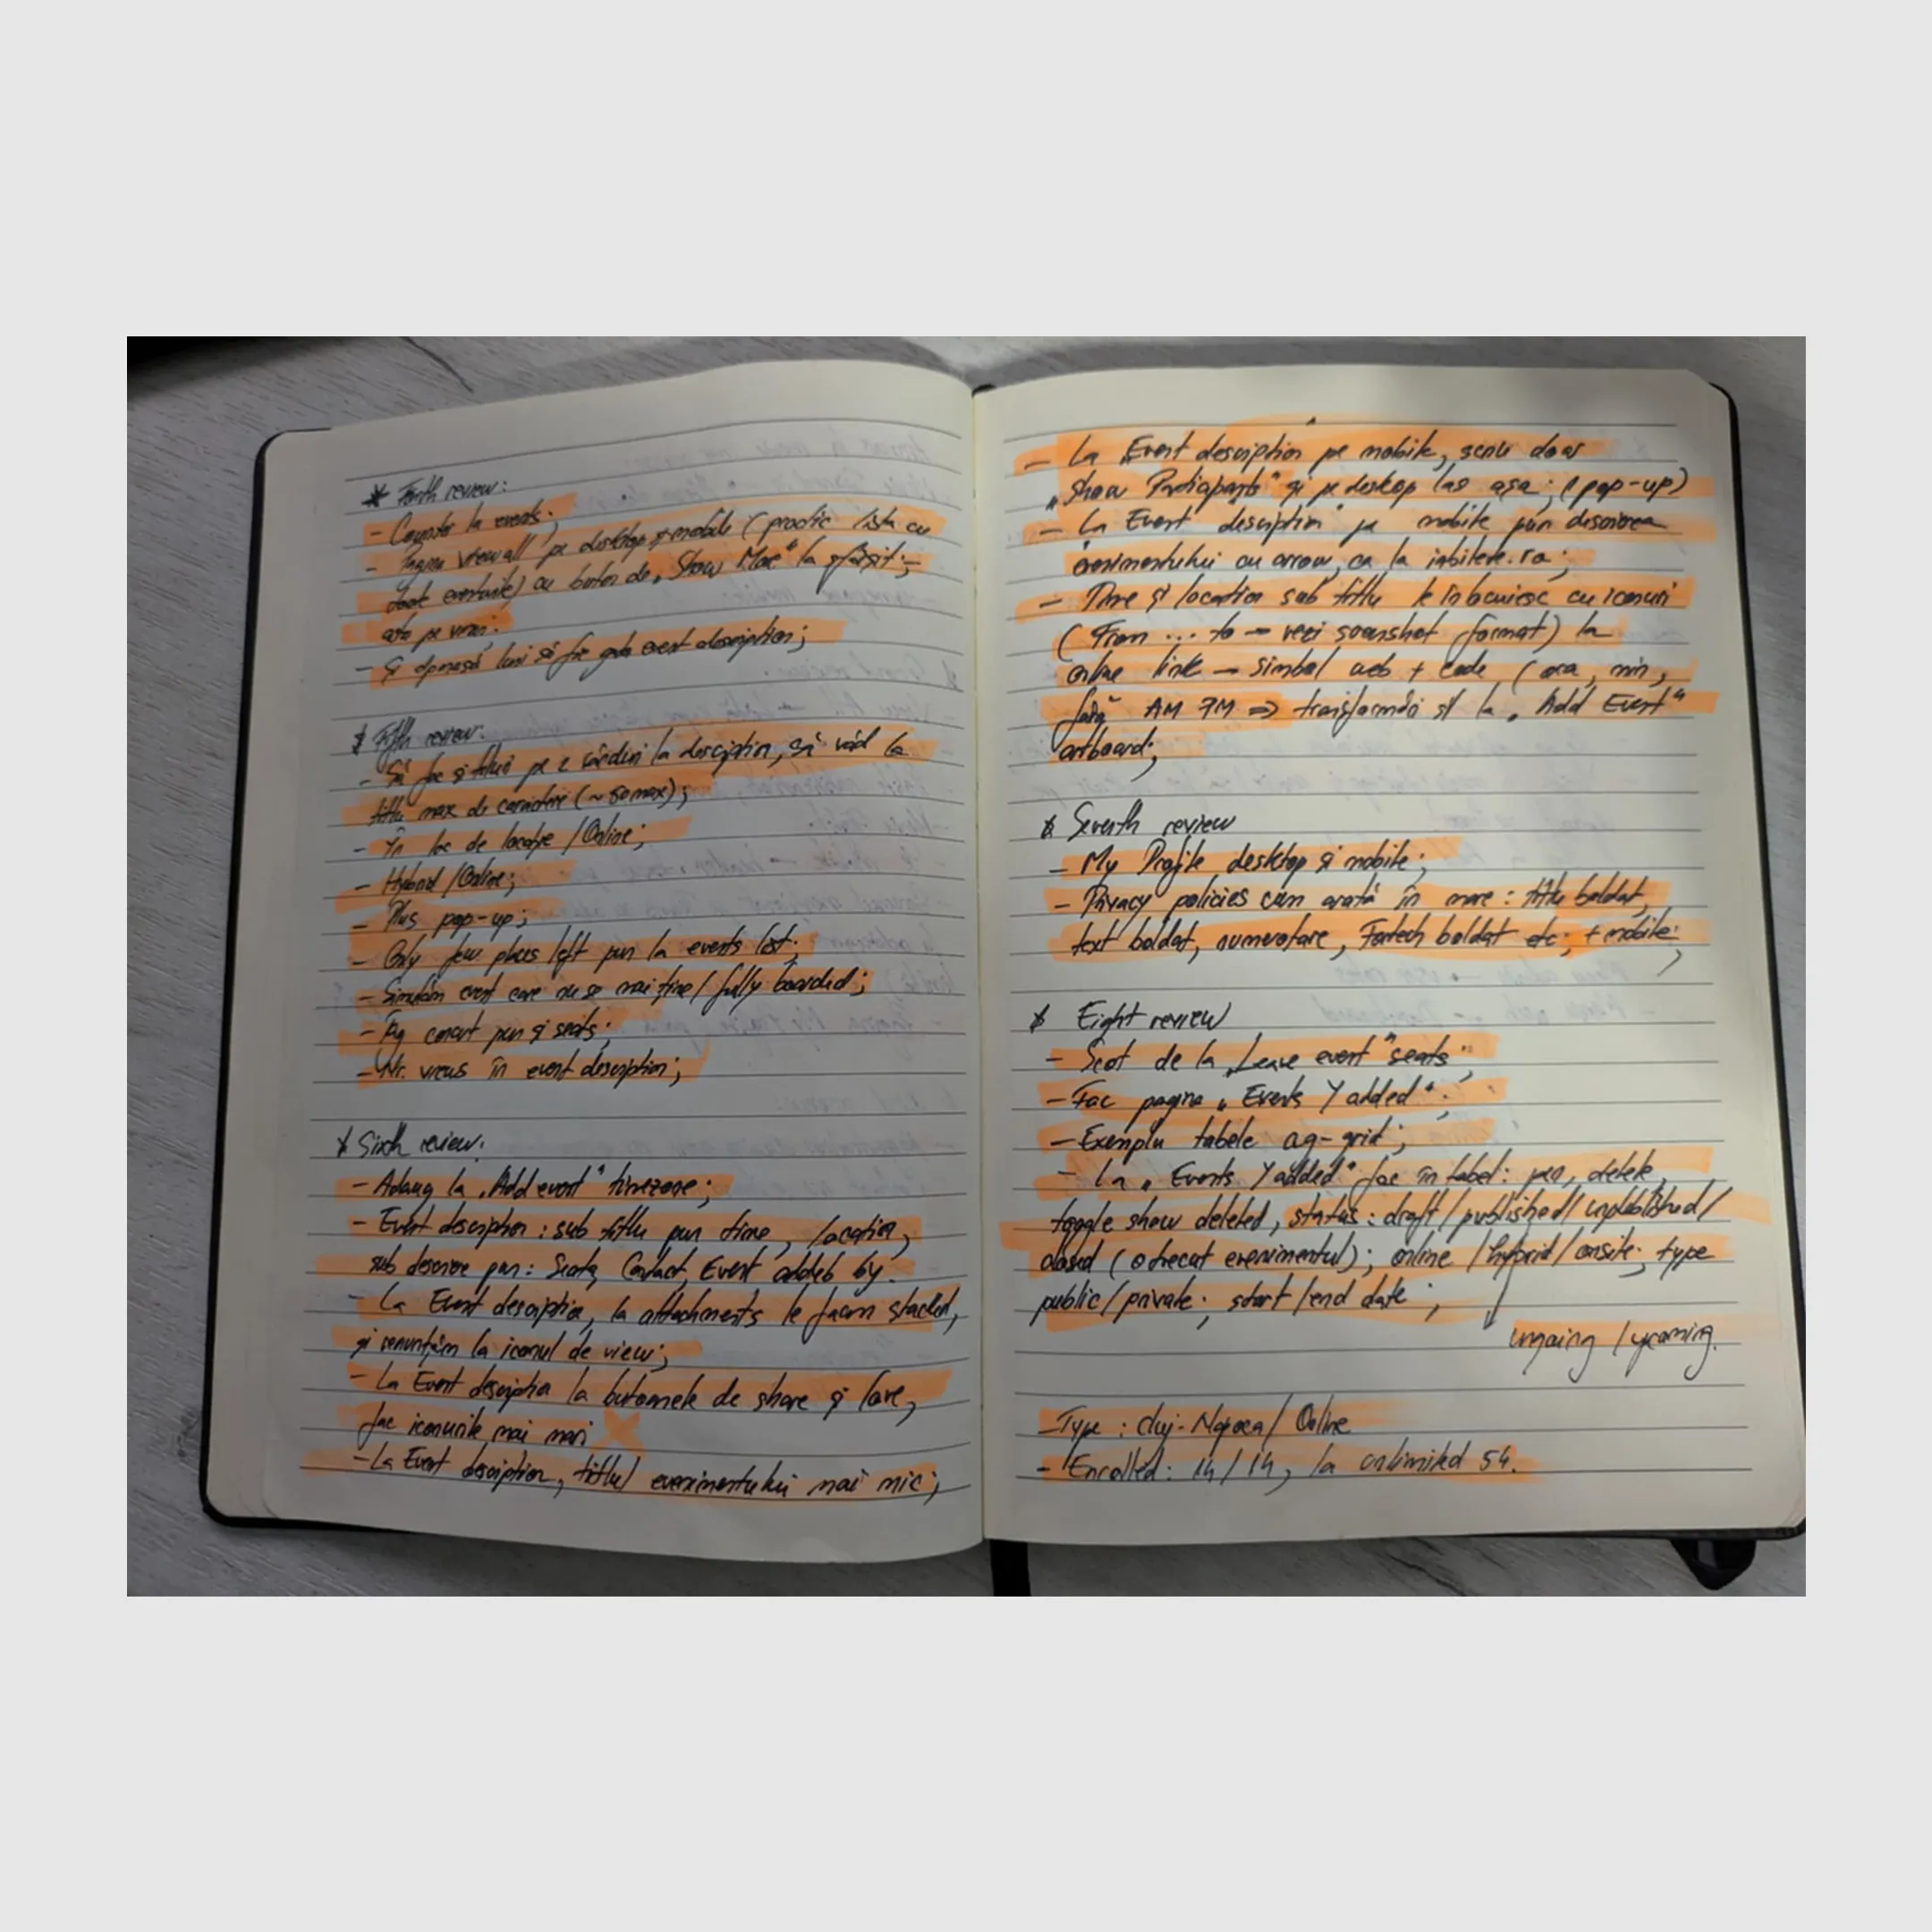 * Forth review:
- la events;
- Pagina "View all" pe desktop și mobile (practic lista cu
toate eventurile) cu buton de "Show More" la sfârșit;
asta pe vineri.
- Și până luni să fie gata event description;
* Fifth review:
- Să fac și titlul pe 2 rânduri la description, să văd la
titlu max de caractere (~ 80 max);
- În loc de locație / Online;
- Hybrid / Online;
- Plus pop-up;
- Only few places left pun la events list;
- Simulăm event care nu se mai ține / fully boarded;
- pun și seats;
- Nr. views în event description;
* Sixth review:
- Adaug la "Add event" timezone;
- Event description: sub titlu pun time, location,
sub descriere pun: Seats, Contact, Event added by.
- La Event description, la attachments le facem stacked,
și renunțăm la iconul de view;
- La Event description la butoanele de share și love,
fac iconurile mai mari
- La Event description, titlul evenimentului mai mic;
- La "Event description pe mobile, scriu doar
"Show Participants" și pe desktop las așa; (pop-up)
- La "Event description" pe mobile pun descrierea
evenimentului cu arrow, ca la iabilete.ro;
- Time și location sub titlu le înlocuiesc cu iconuri
(From ... to → vezi screenshot format) la
online link → simbol web + code (ora, min,
fără AM PM => transformări și la "Add Event"
artboard;
* Seventh review
- My Profile desktop și mobile;
- Privacy policies cum arată în mare: titlu boldat,
text boldat, numerotare, Fortech boldat etc; + mobile;
* Eight review
- Scot de la "Leave event" seats;
- Fac pagina "Events I added";
- Exemplu tabele ag-grid;
- La "Events I added" fac în tabel: pen, delete,
toggle show deleted, status: draft / published / unpublished /
closed (a trecut evenimentul); online / hybrid / onsite; type
public / private; start / end date;
ongoing / upcoming.
- Type: Cluj-Napoca / Online
- Enrolled: 14 / 14, la unlimited 54.